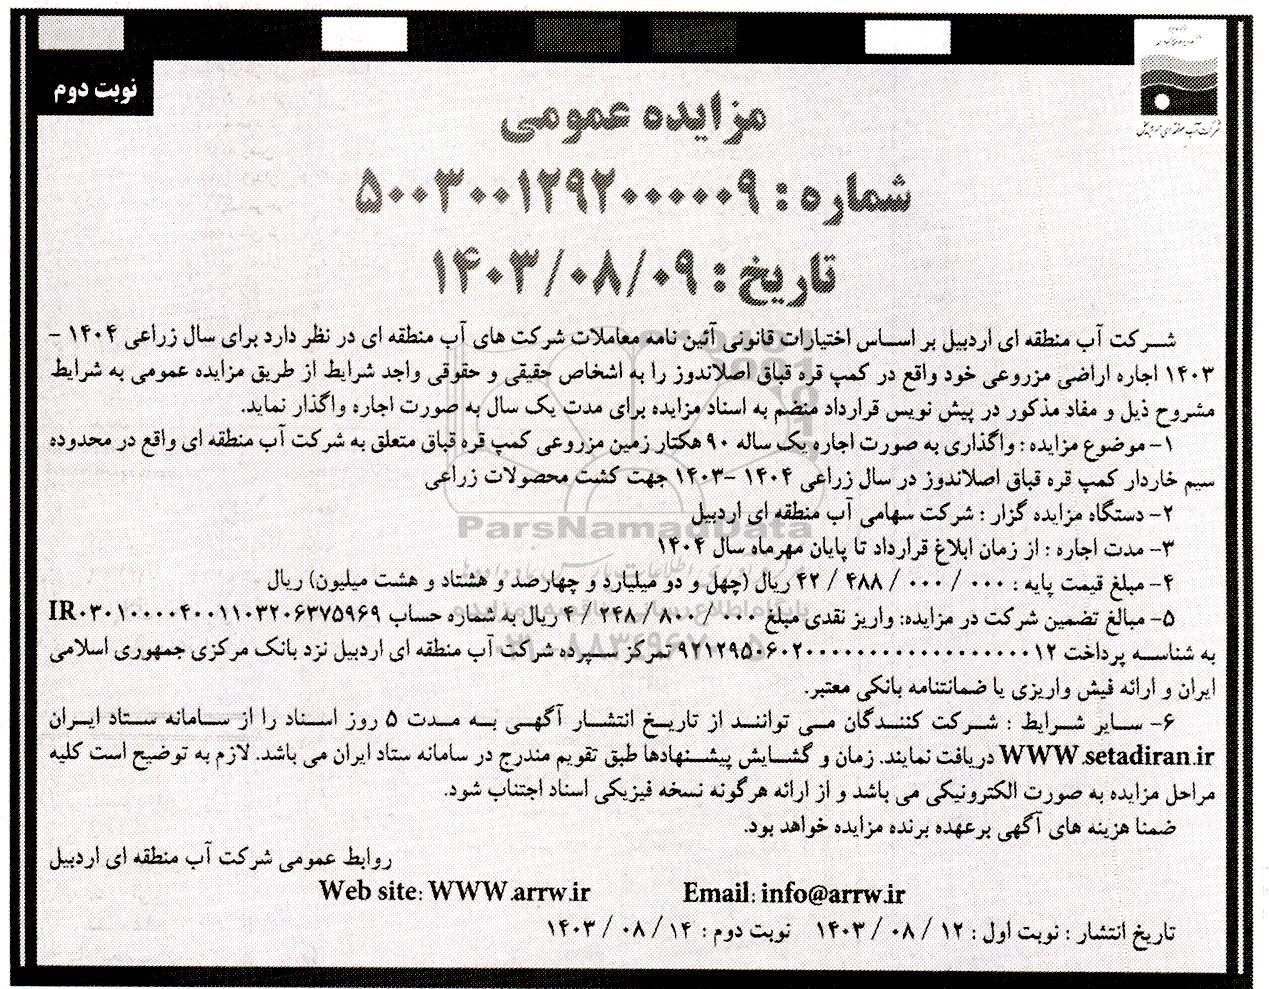 نوبت دوم
شرکت آب منطقه ای اردبیل
مزایده عمومی
شماره : ۵۰۰۳۰۰۱۲۹۲۰۰۰۰۰۹
تاریخ : ۱۴۰۳/۰۸/۰۹
شرکت آب منطقه ای اردبیل بر اساس اختیارات قانونی آئین نامه معاملات شرکت های آب منطقه ای در نظر دارد برای سال زراعی ۱۴۰۴ –
۱۴۰۳ اجاره اراضی مزروعی خود واقع در کمپ قره قباق اصلاندوز را به اشخاص حقیقی و حقوقی واجد شرایط از طریق مزایده عمومی به شرایط
مشروح ذیل و مفاد مذکور در پیش نویس قرارداد منضم به اسناد مزایده برای مدت یک سال به صورت اجاره واگذار نماید.
۱– موضوع مزایده : واگذاری به صورت اجاره یک ساله ۹۰ هکتار زمین مزروعی کمپ قره قباق متعلق به شرکت آب منطقه ای واقع در محدوده
سیم خاردار کمپ قره قباق اصلاندوز در سال زراعی ۱۴۰۴ –۱۴۰۳ جهت کشت محصولات زراعی
۲– دستگاه مزایده گزار : شرکت سهامی آب منطقه ای اردبیل
ParsNamadData
۳– مدت اجاره : از زمان ابلاغ قرارداد تا پایان مهرماه سال ۱۴۰۴
۴– مبلغ قیمت پایه : ۰۰۰ / ۰۰۰ / ۴۸۸ / ۴۲ ریال (چهل و دو میلیارد و چهارصد و هشتاد و هشت میلیون) ریال
۵– مبالغ تضمین شرکت در مزایده: واریز نقدی مبلغ ۰۰۰ / ۸۰۰ / ۲۴۸ / ۴ ریال به شماره حساب IR۰۳۰۱۰۰۰۰۴۰۰۱۱۰۳۲۰۶۳۷۵۹۶۹
به شناسه پرداخت تمرکز سپرده شرکت آب منطقه ای اردبیل نزد بانک مرکزی جمهوری اسلامی
ایران و ارائه فیش واریزی یا ضمانتنامه بانکی معتبر.
۶– سایر شرایط : شرکت کنندگان می توانند از تاریخ انتشار آگهی به مدت ۵ روز اسناد را از سامانه ستاد ایران
WWW.setadiran.ir دریافت نمایند. زمان و گشایش پیشنهادها طبق تقویم مندرج در سامانه ستاد ایران می باشد. لازم به توضیح است کلیه
مراحل مزایده به صورت الکترونیکی می باشد و از ارائه هرگونه نسخه فیزیکی اسناد اجتناب شود.
ضمنا هزینه های آگهی برعهده برنده مزایده خواهد بود.
روابط عمومی شرکت آب منطقه ای اردبیل
Email: info@arrw.ir Web site: WWW.arrw.ir
تاریخ انتشار : نوبت اول : ۱۲ / ۰۸ / ۱۴۰۳ نوبت دوم : ۱۴ / ۰۸ / ۱۴۰۳